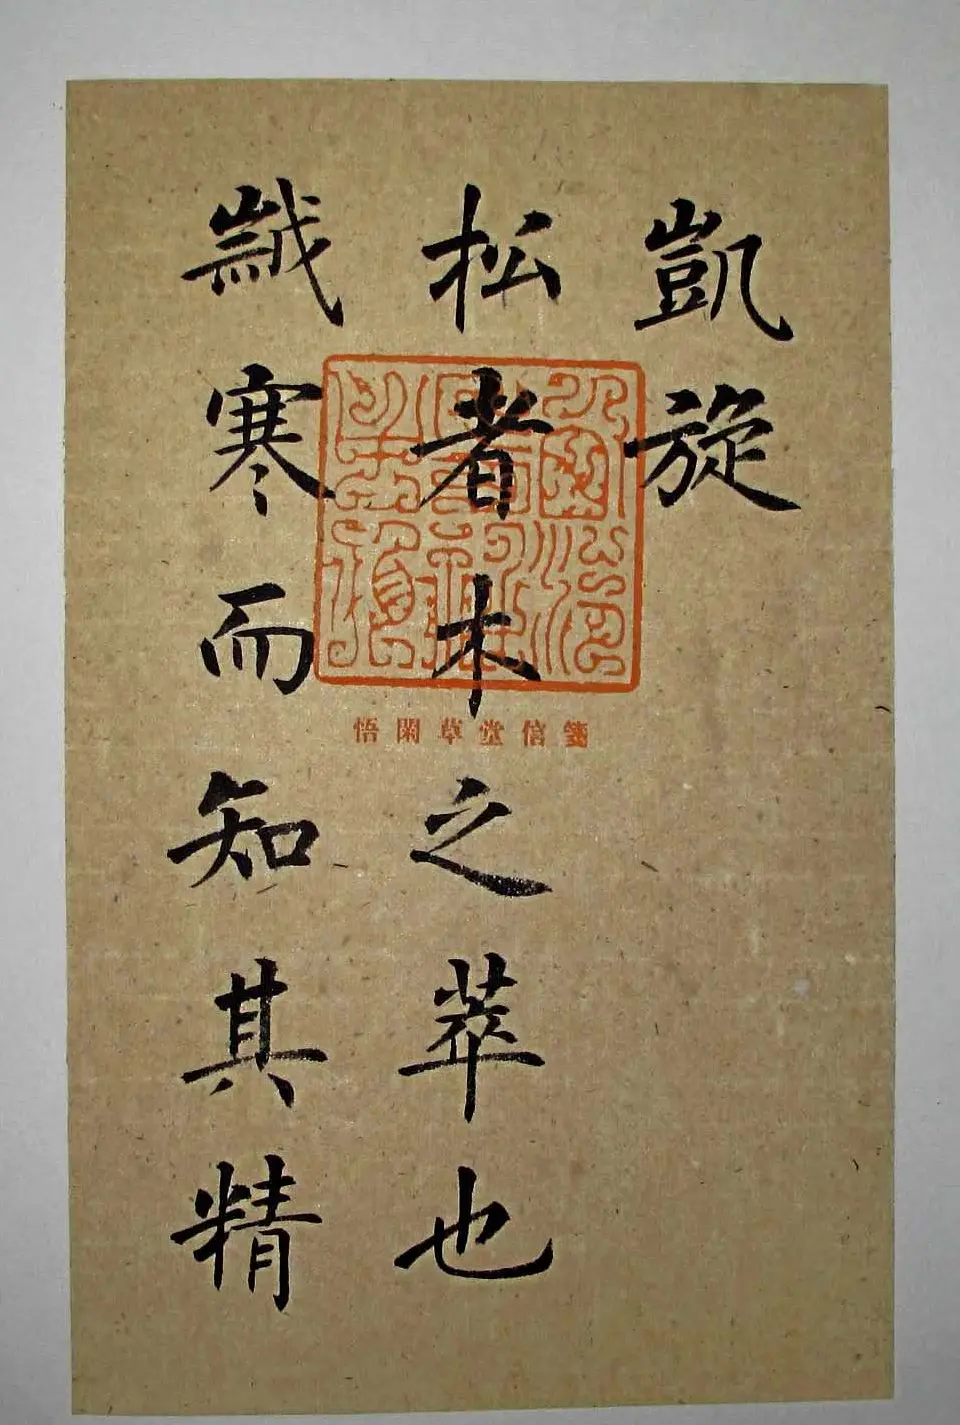 凱旋
松者木之萃也
歲寒而知其精
悟閑草堂信箋